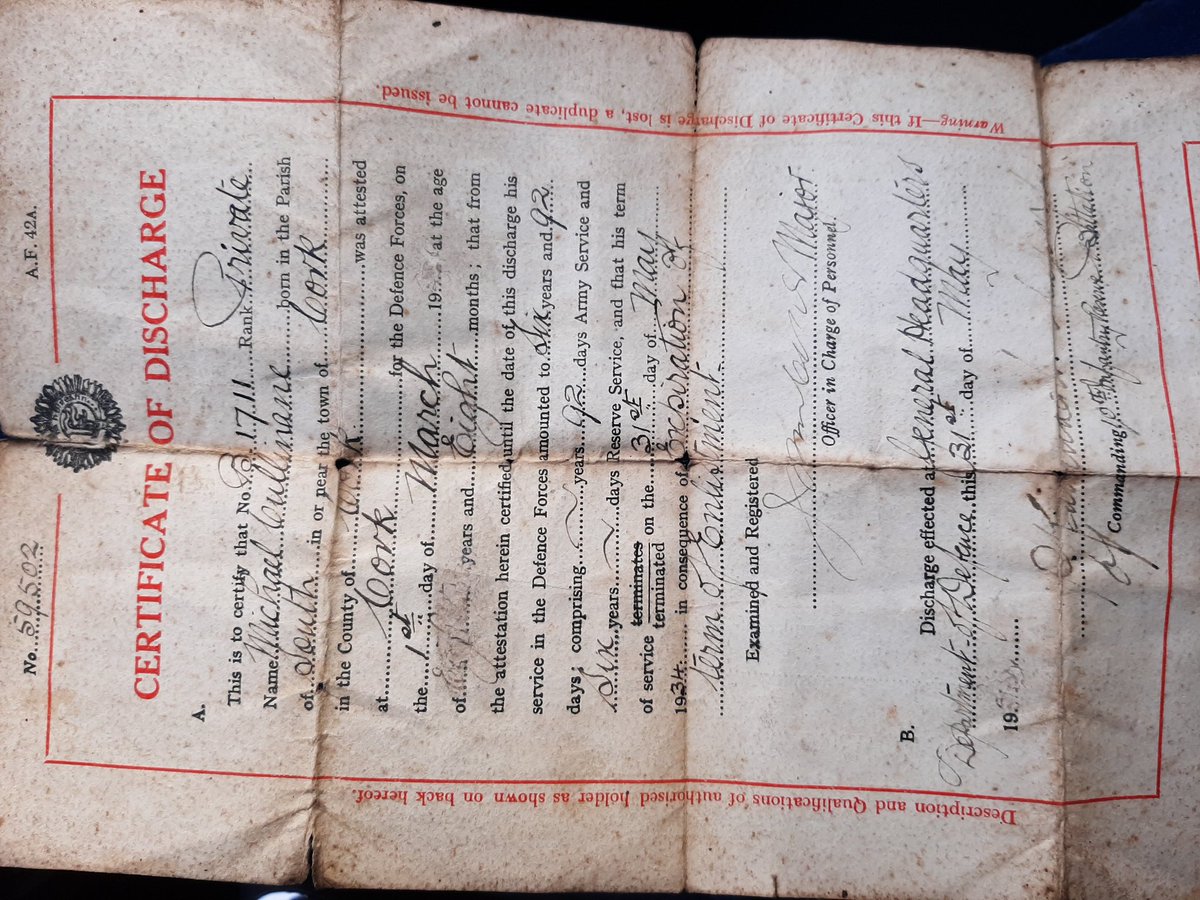 No. 59502
A.F. 42A.
CERTIFICATE OF DISCHARGE
A.
This is to certify that No. 1711 Rank Private
Name Michael Cullinane born in the Parish
of South in or near the town of Cork
in the County of Cork was attested
at Cork for the Defence Forces, on
the 1st day of March 19 at the age
of years and Eight months; that from
the attestation herein certified until the date of this discharge his
service in the Defence Forces amounted to Six years and 92
days comprising years 92 days Army Service and
Six years days Reserve Service, and that his term
of service terminates
terminated on the 31st day of May
1934 in consequence of Expiration of
Term of Enlistment
Examined and Registered
Major
Officer in Charge of Personnel.
B.
Discharge effected at General Headquarters
Department of Defence this 31st day of May
19
Commanding 10th Infantry Battalion
Warning—If this Certificate of Discharge is lost, a duplicate cannot be issued.
Description and Qualifications of authorised holder as shown on back hereof.